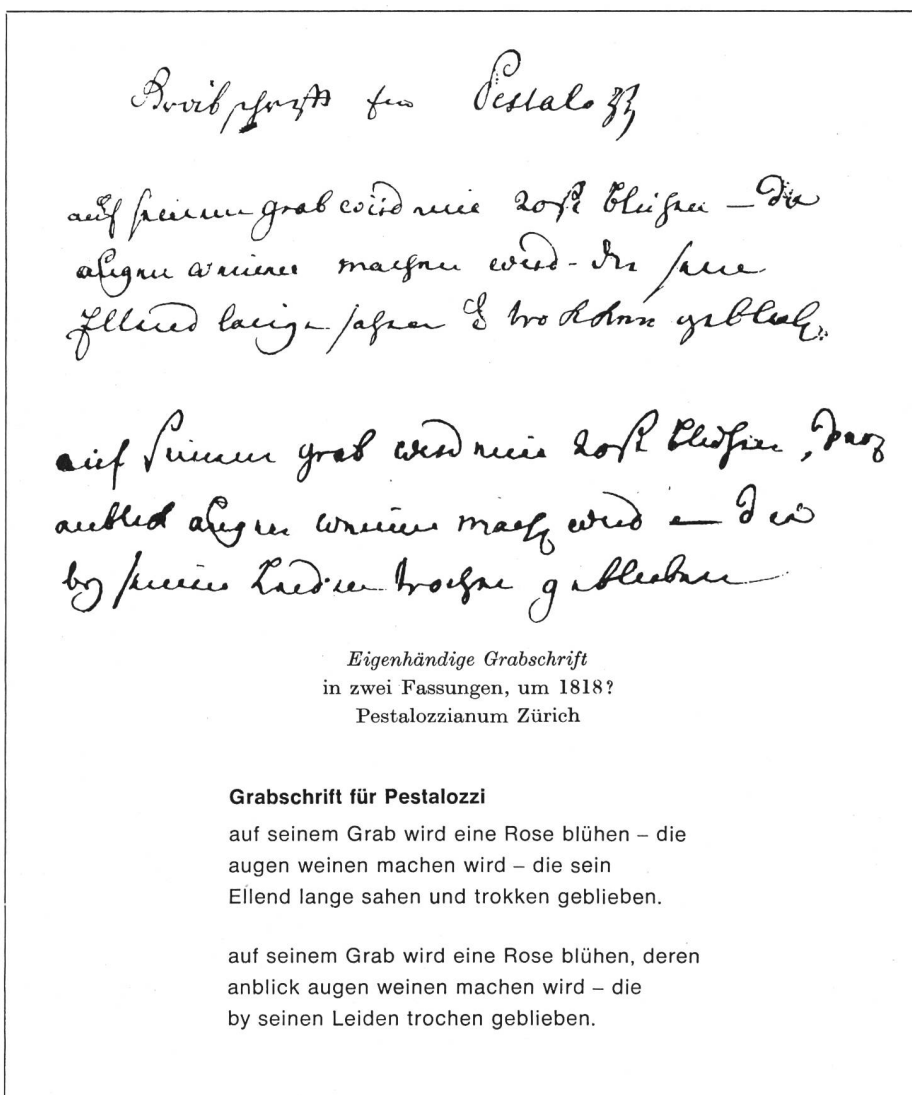 Grabschrift für Pestalozzi
auf seinem grab wird eine rose blühen – die
augen weinen machen wird – die seine
Ellend lange sahen & trokken geblieben.
auf seinem grab wird eine rose blühen, deren
anblick augen weinen machen wird – die
by seinen Leiden trochen geblieben
Eigenhändige Grabschrift
in zwei Fassungen, um 1818?
Pestalozzianum Zürich
Grabschrift für Pestalozzi
auf seinem Grab wird eine Rose blühen – die
augen weinen machen wird – die sein
Ellend lange sahen und trokken geblieben.
auf seinem Grab wird eine Rose blühen, deren
anblick augen weinen machen wird – die
by seinen Leiden trochen geblieben.